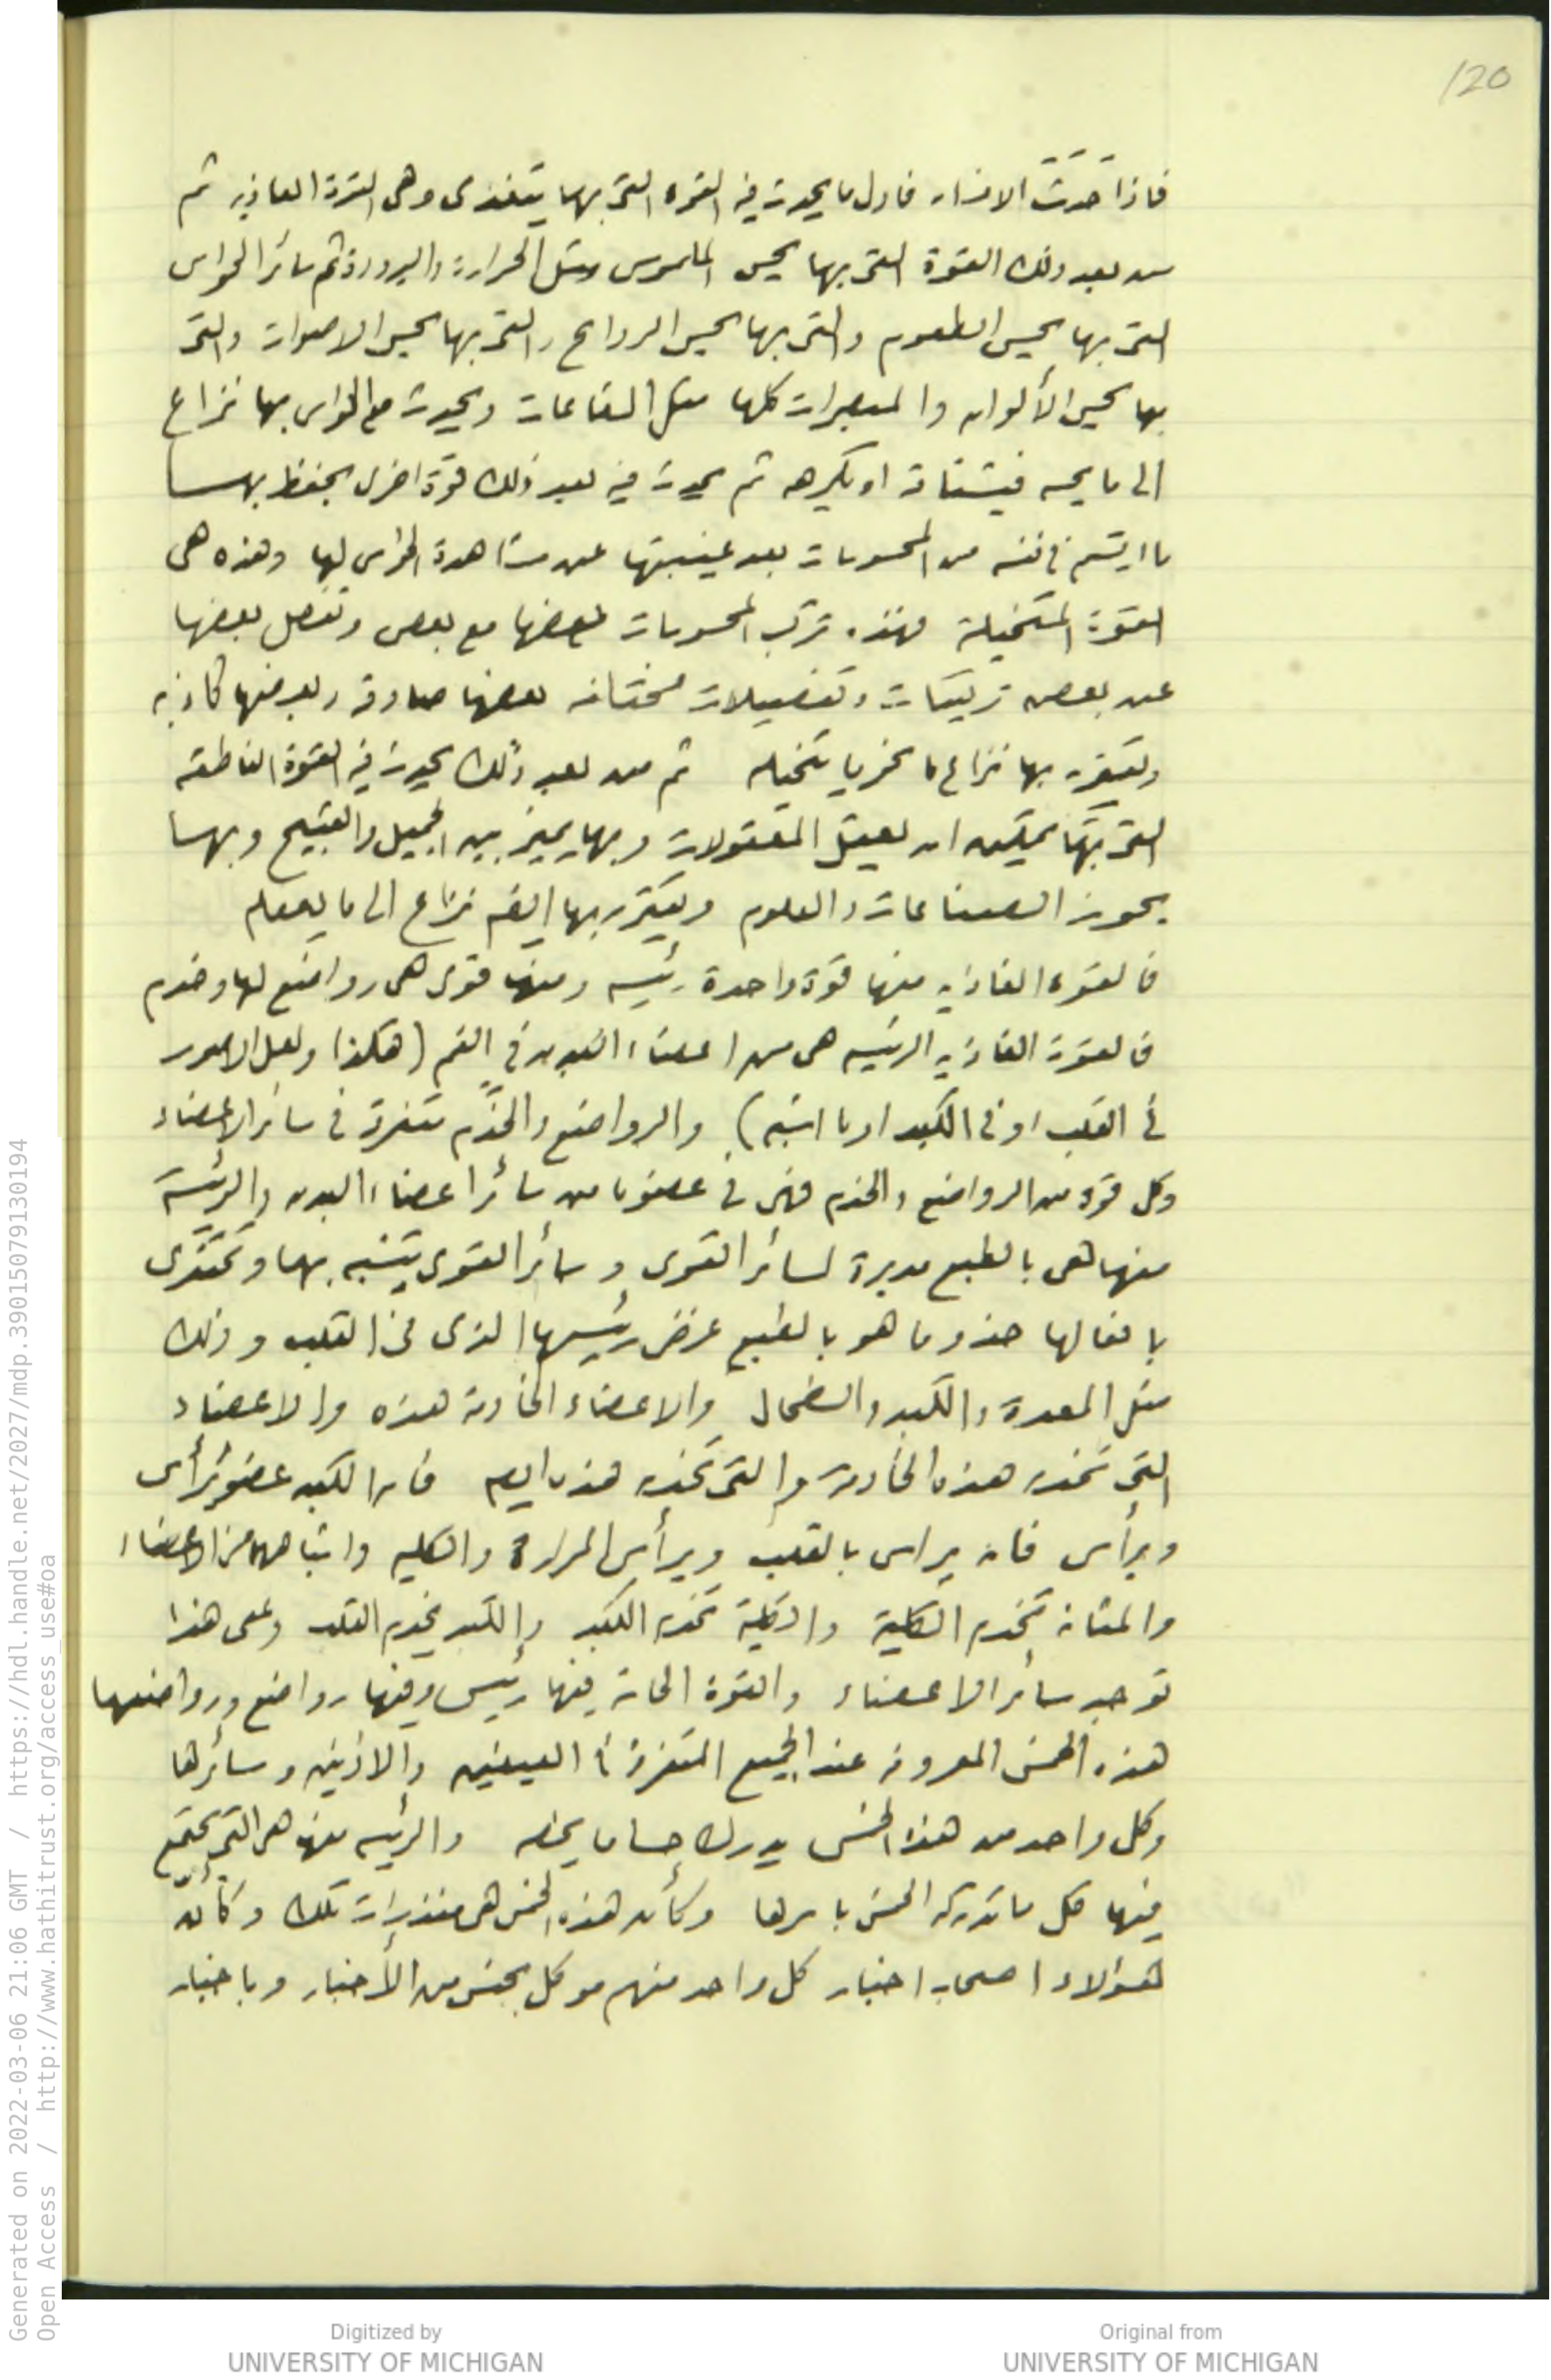 120
فاذا حدثت الانسان فاول ما يحدث فيه القوة التى بها يتغذى وهى القوة الغاذيه ثم
من بعد ذلك القوة التى بها يحس الملموس مثل الحرارة والبرودة ثم سائر الحواس
التى بها يحس الطعوم والتى بها يحس الروائح والتى بها يحس الاصوات والتى
بها يحس الألوان والمبصرات كلها مثل الشعاعات ويحدث مع الحواس بها نزاع
الى ما يحسه فيشتاقه او يكرهه ثم يحدث فيه بعد ذلك قوة اخرى يحفظ بهـا
ما ارتسم فى نفسه من المحسوسات بعد غيبتها عن مشاهدة الحواس لها وهذه هى
القوة المتخيلة فهذه تركب المحسوسات بعضها مع بعض وتفصل بعضها
عن بعض تركيبات وتفصيلات مختلفه بعضها صادقه وبعضها كاذبه
ويقترن بها نزاع نحو ما يتخيله ثم من بعد ذلك يحدث فيه القوة الناطقه
التى بها يمكن ان يعقل المعقولات وبها يميز بين الجميل والقبيح وبهـا
يحوز الصناعات والعلوم ويقترن بها ايضا نزاع الى ما يعقله
فالقوه الغاذيه منها قوة واحدة رئيسه ومنها قوى هى رواضع لها وخدم
فالقوة الغاذيه الرئيسه هى من اعضاء البدن فى الفم (هكذا ولعل الاصوب
فى القلب او فى الكبد او ما اشبه) والرواضع والخدم متفرقه فى سائر الاعضاء
وكل قوة من الرواضع والخدم فهى فى عضو ما من سائر اعضاء البدن والرئيسة
منها هى بالطبع مدبرة لسائر القوى وسائر القوى يتشبه بها وتحتذى
بافعالها حذو ما هو بالطبع غرض رئيسها الذى فى القلب وذلك
مثل المعدة والكبد والطحال والاعضاء الخادمة هذه والاعضاء
التى تخدم هذه الخادمة والتى تخدم هذه ايضا فان الكبد عضو يرأس
ويرأس فانه يراس بالقلب ويرأس المرارة والكليه واشباههما من الاعضاء
والمثانه تخدم الكلية والكلية تخدم الكبد والكبد يخدم القلب وعلى هذا
توجد سائر الاعضاء والقوة الحاسة فيها رئيس وفيها رواضع ورواضعها
هذه الخمس المعروفه عند الجميع المتفرقة فى العينين والاذنين وسائرها
وكل واحد من هذه الخمس يدرك حسا ما يخصه والرئيسه منها هى التى يجتمع
فيها كل ما تدركه الخمس باسرها وكأن هذه الخمس هى منذرات تلك وكأن
هؤلاء اصحاب اخبار كل واحد منهم موكل بجنس من الأخبار وباخبار
Generated on 2022-03-06 21:06 GMT / https://hdl.handle.net/2027/mdp.39015079130194
Open Access / http://www.hathitrust.org/access_use#oa
Digitized by
UNIVERSITY OF MICHIGAN
Original from
UNIVERSITY OF MICHIGAN